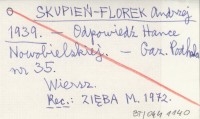 SKUPIEŃ-FLOREK Andrzej
1939. – Odpowiedź Hance
Nowobielskiej. – Gaz. Podhala
nr 35.
Wiersz.
Rec.: ZIĘBA M. 1972.